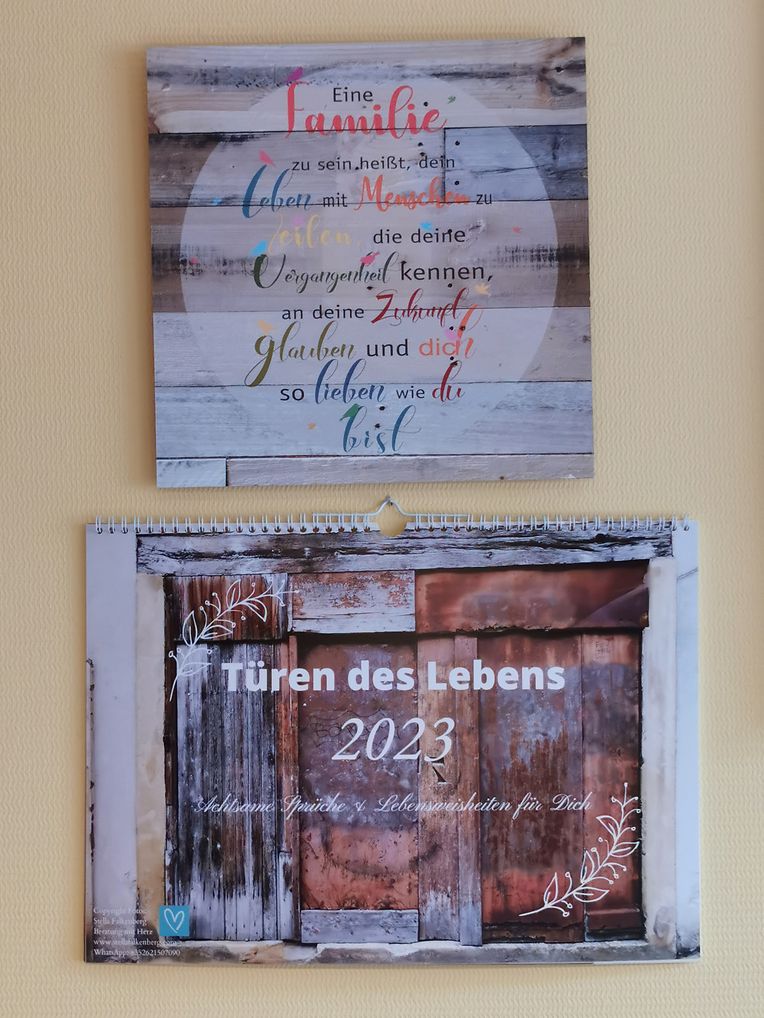 Eine
Familie
zu sein heißt, dein
Leben mit Menschen zu
teilen, die deine
Vergangenheit kennen,
an deine Zukunft
glauben und dich
so lieben wie du
bist
Türen des Lebens
2023
Achtsame Sprüche & Lebensweisheiten für Dich
Copyright Fotos:
Stella Falkenberg
Beratung mit Herz
www.stellafalkenberg.com
WhatsApp: +352621507090